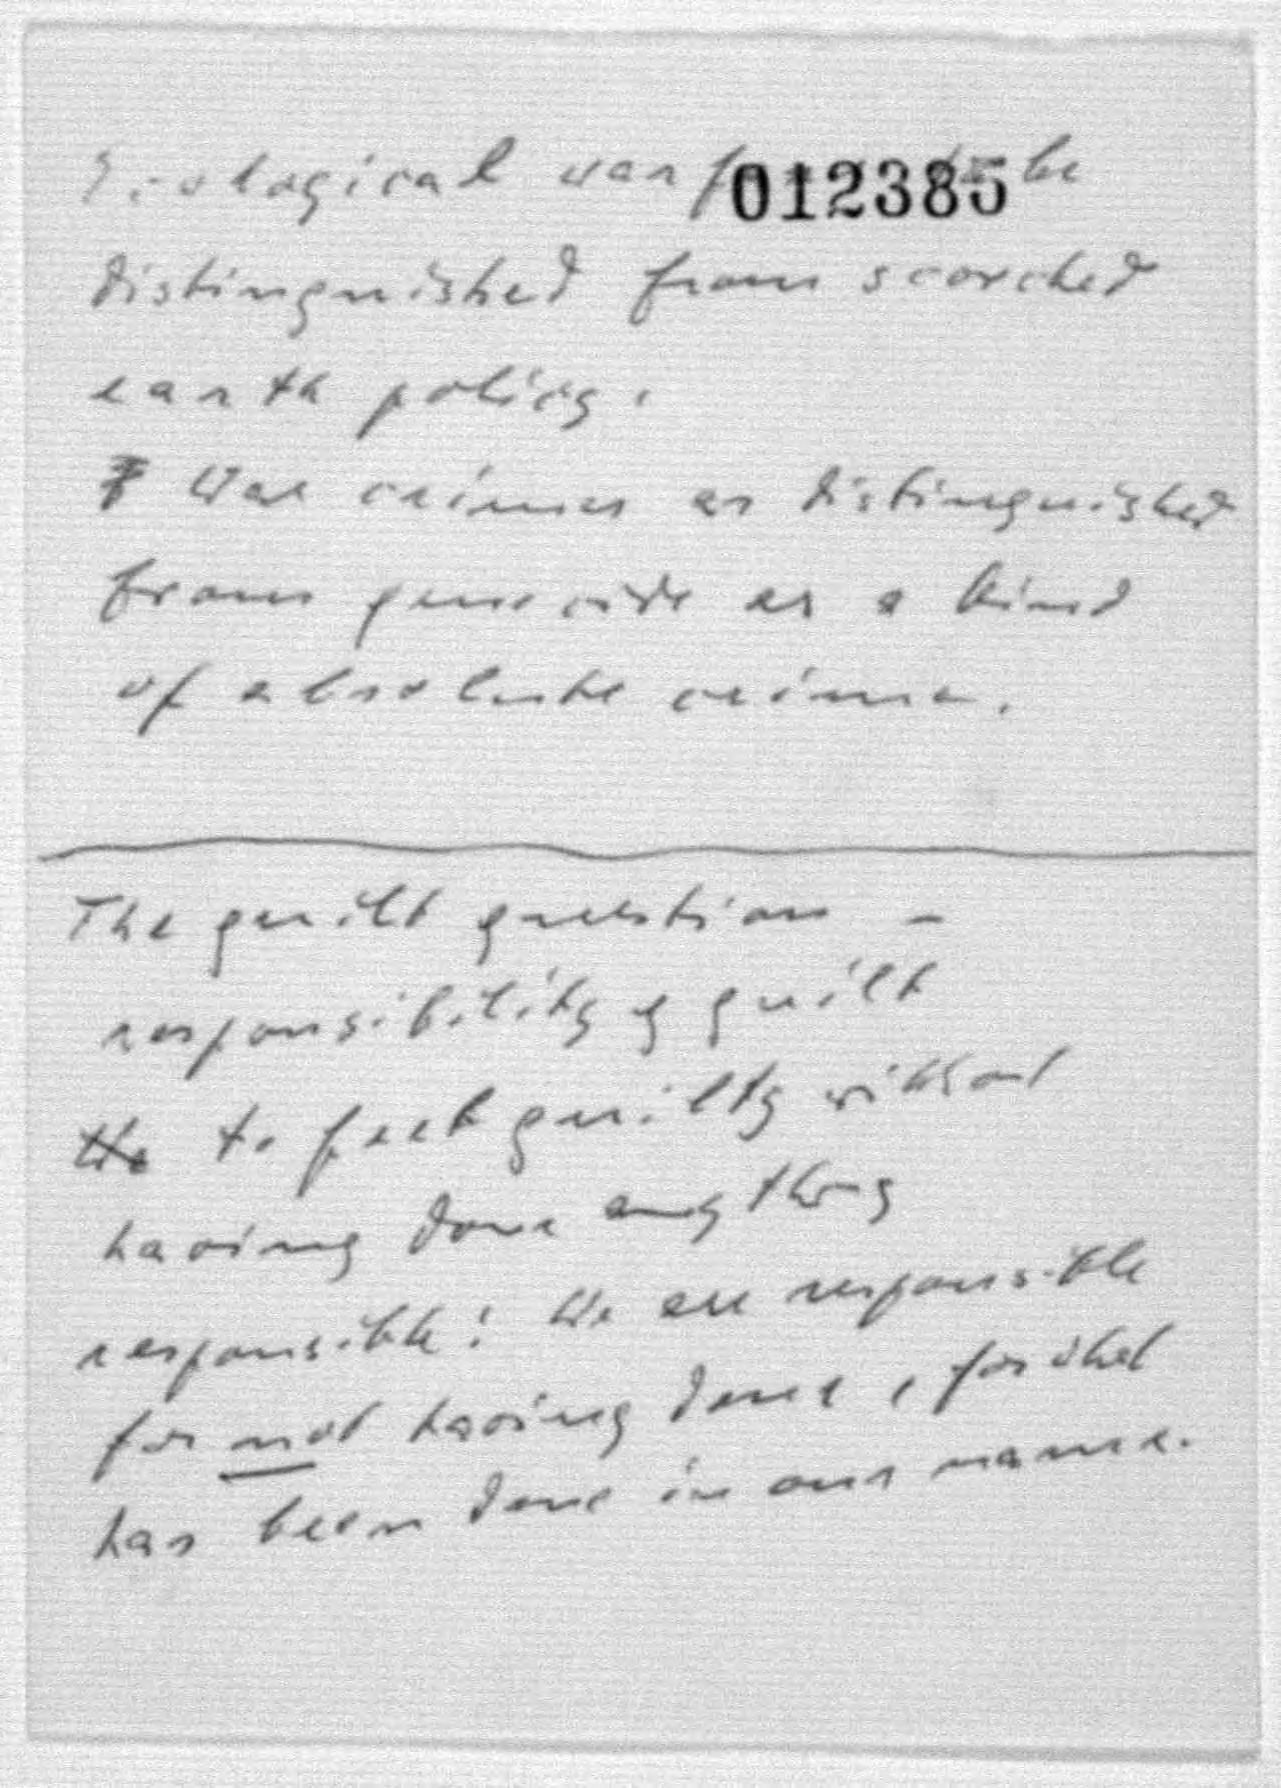 Ecological warfare to be
012385
distinguished from scorched
earth policy.
War crimes as distinguished
from genocide as a kind
of absolute crime.
The guilt question –
responsibility of guilt
to feel guilty without
having done anything
responsible: We are responsible
for not having done, for what
has been done in our name.